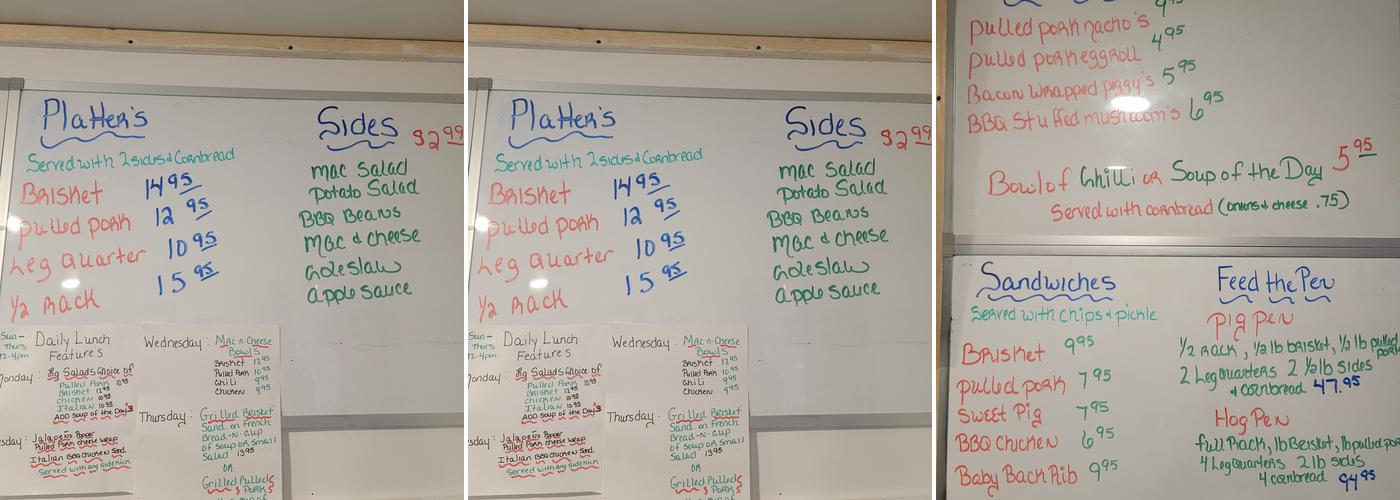 Platter's
Served with 2 sides & Cornbread
Brisket 14 95
pulled pork 12 95
Leg Quarter 10 95
1/2 Rack 15 95
Sides $2 99
Mac Salad
Potato Salad
BBQ Beans
Mac & cheese
Coleslaw
apple sauce
Sun-
Thurs
12-4pm
Daily Lunch
Features
Monday: Big Salads Choice of
Pulled Pork 10 95
Brisket 12 95
Chicken 10 95
Italian 10 95
ADD Soup of the Day's
Jalapeno Popper
Pulled Pork cheese wrap
Italian BBQ Chicken Sand.
Served with any side
Wednesday: Mac n Cheese
Bowls
Brisket 12 95
Pulled Pork 10 95
Chili 9 95
Chicken 9 95
Thursday: Grilled Brisket
Sand. on French
Bread -N- Cup
of soup or Small
Salad 13 95
OR
Grilled Pulled
Pork
Platter's
Served with 2 sides & Cornbread
Brisket 14 95
pulled pork 12 95
Leg Quarter 10 95
1/2 Rack 15 95
Sides $2 99
Mac Salad
Potato Salad
BBQ Beans
Mac & cheese
Coleslaw
apple sauce
Sun-
Thurs
12-4pm
Daily Lunch
Features
onday: Big Salads Choice of
Pulled Pork 10 95
Brisket 12 95
Chicken 10 95
Italian 10 95
ADD Soup of the Day's
Jalapeno Popper
Pulled Pork cheese wrap
Italian BBQ Chicken Sand.
Served with any side
Wednesday: Mac n Cheese
Bowls
Brisket 12 95
Pulled Pork 10 95
Chili 9 95
Chicken 9 95
Thursday: Grilled Brisket
Sand. on French
Bread -N- Cup
of soup or Small
Salad 13 95
OR
Grilled Pulled
Pork
pulled pork nacho's 9 95
pulled pork eggroll 4 95
Bacon Wrapped piggy's 5 95
BBQ Stuffed mushroom's 6 95
Bowl of Chilli OR Soup of the Day 5 95
Served with cornbread (onions & cheese .75)
Sandwiches
Served with chips & pickle
Brisket 9 95
pulled pork 7 95
Sweet Pig 7 95
BBQ Chicken 6 95
Baby Back Rib 9 95
Feed the Pen
Pig Pen
1/2 Rack, 1/2 lb brisket, 1/2 lb pulled pork
2 Leg Quarters 2 1/2 lb sides
4 cornbread 47.95
Hog Pen
full Rack, 1 lb Brisket, 1 lb pulled pork
4 Leg Quarters 2 lb sides
4 cornbread 94 95